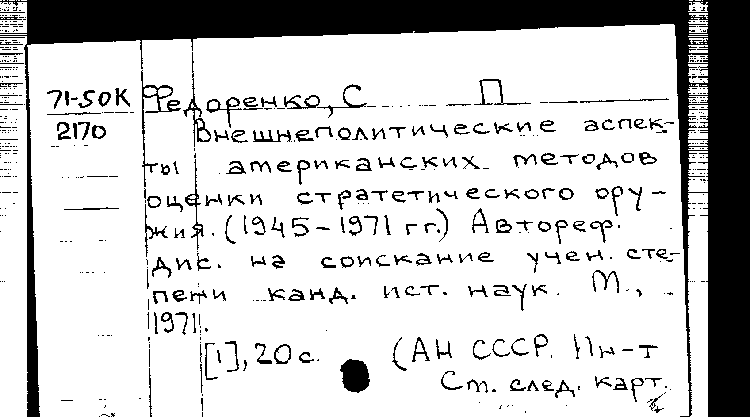 71-50К Федоренко, С П
2170 Внешнеполитические аспек-
ты американских методов
оценки стратетического ору-
жия. (1945-1971 гг.) Автореф.
дис. на соискание учен. сте-
пени канд. ист. наук. М.,
1971.
[1], 20 с. (АН СССР. Ин-т
См. след. карт.